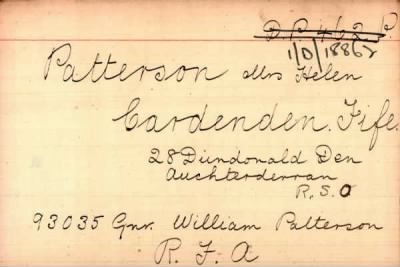 D.P. 462 P
1/D/1886
Patterson Mrs Helen
Cardenden. Fife.
28 Dundonald Den
Auchterderran
R.S.O
93035 Gnr. William Patterson
R.F.A